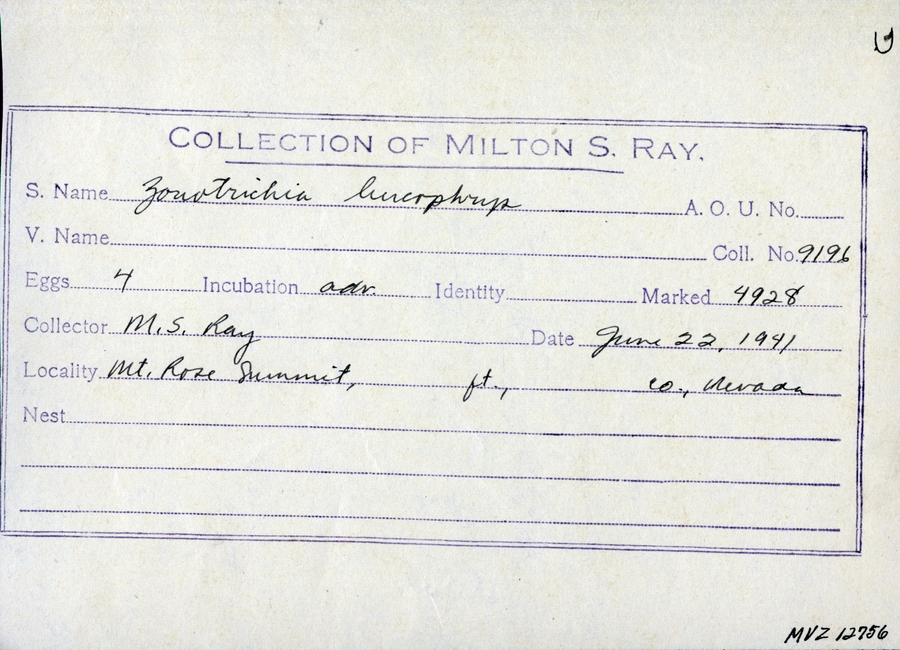 U
COLLECTION OF MILTON S. RAY.
S. Name Zonotrichia leucophrys A. O. U. No.
V. Name Coll. No. 9196
Eggs 4 Incubation adv. Identity Marked 4928
Collector M. S. Ray Date June 22, 1941
Locality Mt. Rose Summit, ft., Co., Nevada
Nest
MVZ 12756